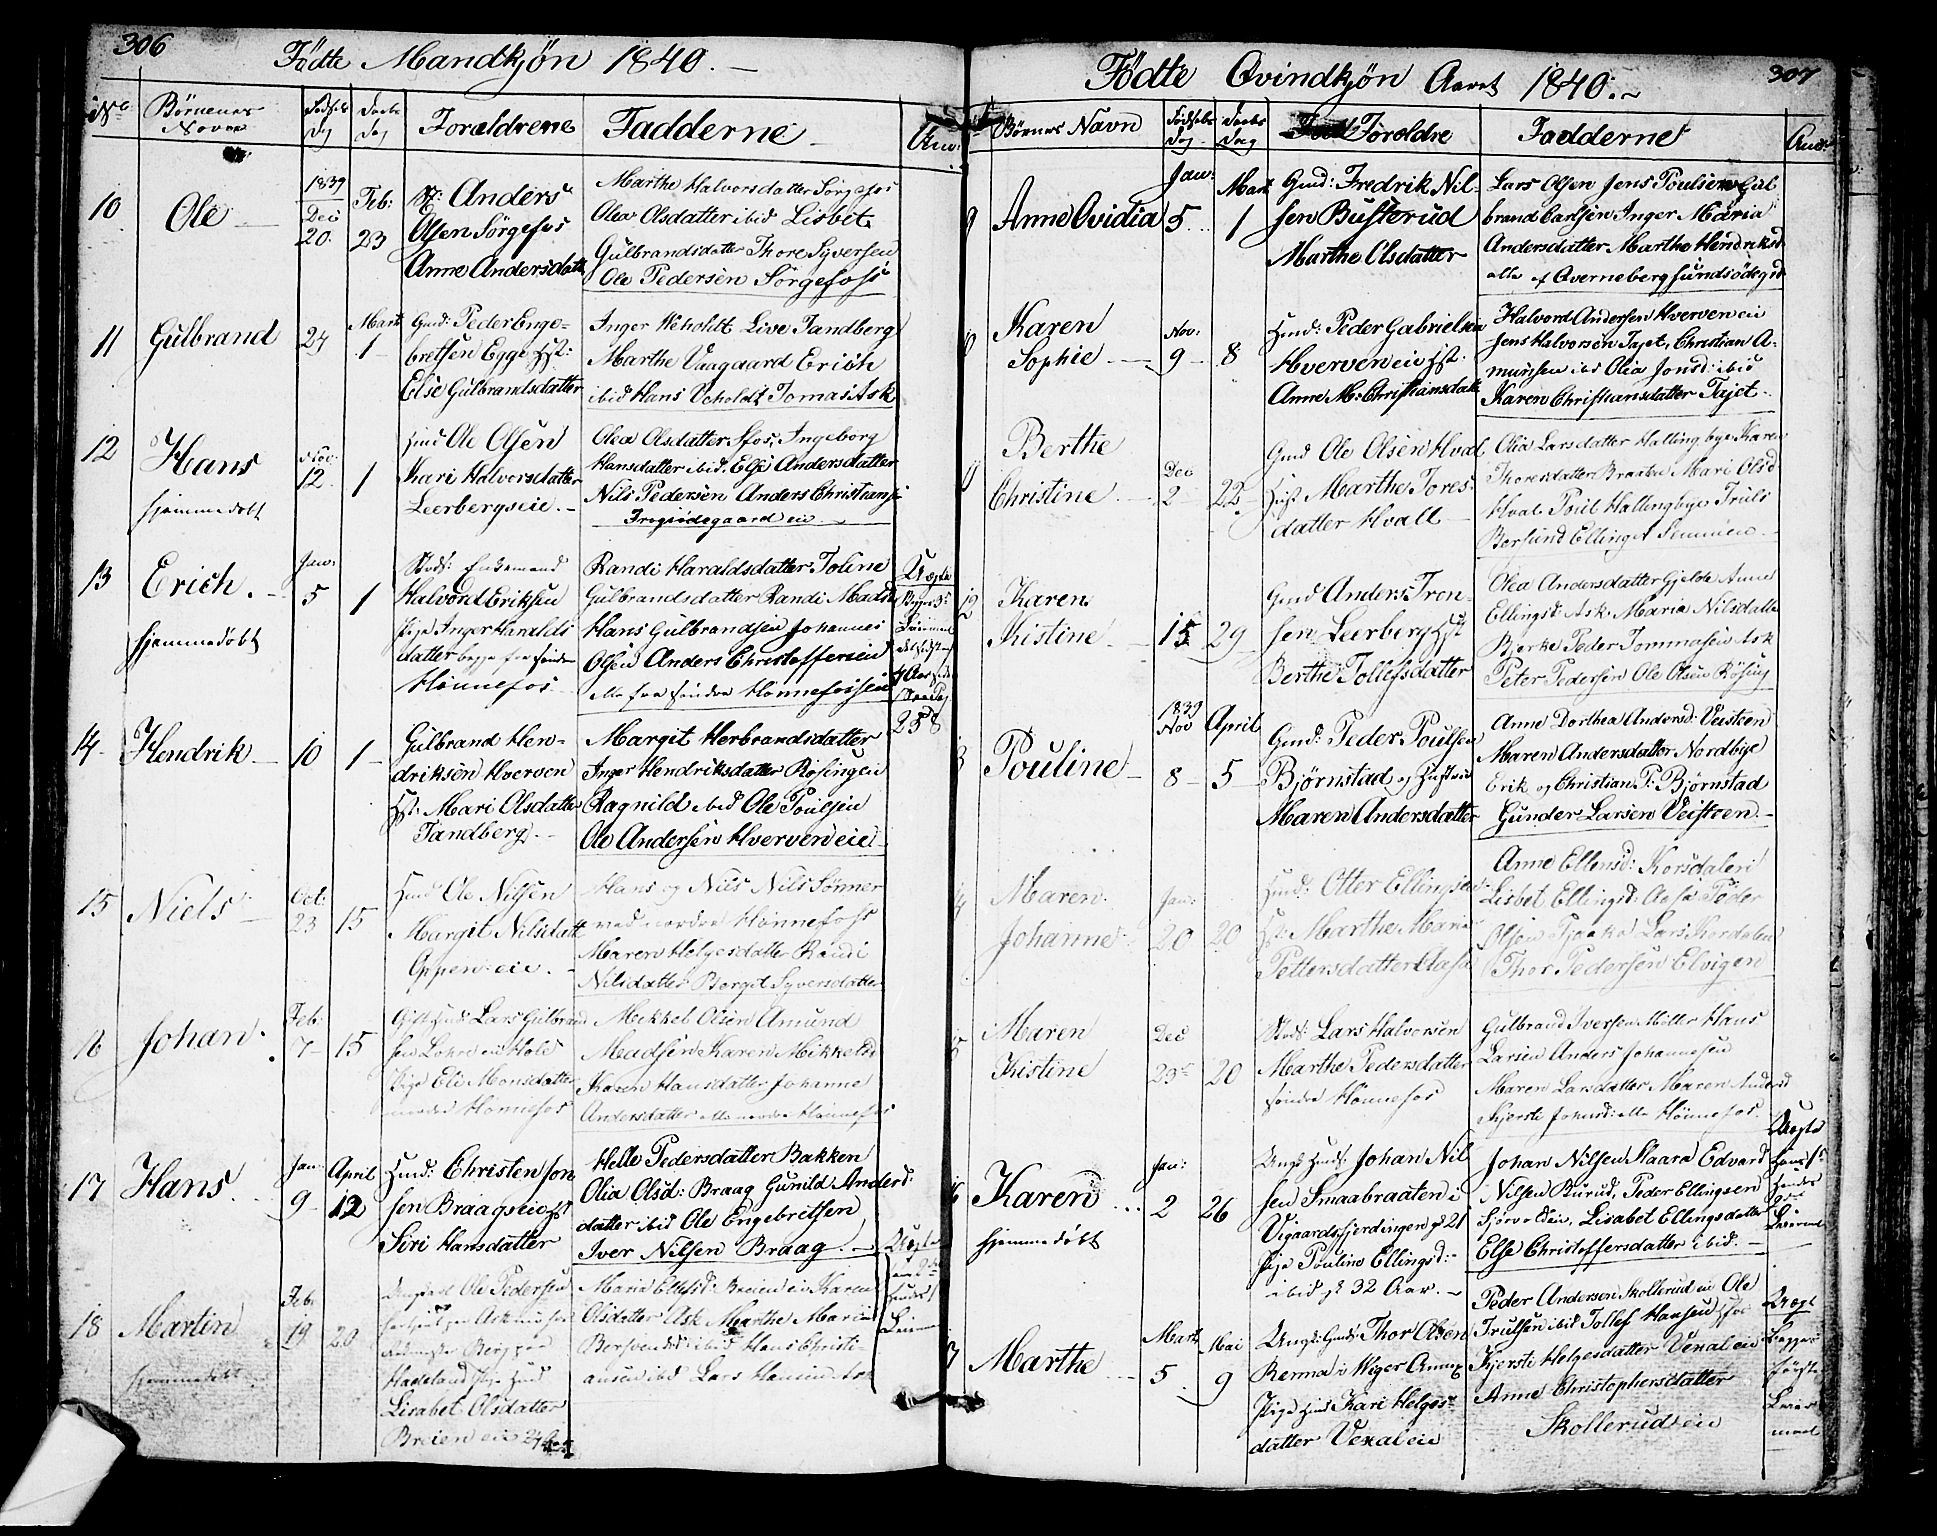 306
Födte Mandkjön 1840. —
No.
Börnenes Navne
Fødsels Dag
Daabs Dag
Forældrene
Fadderne
Anm:
10
Ole
1839
Dec
20.
Feb:
23
Anders
Olsen Sörgefos
Anne Andersdatt
Marthe Halvorsdatter Sörgefos
Olea Olsdatter ibid Lisbet
Gulbrandsdatter Thore Syversen
Ole Pedersen Sörgefoss
11
Gulbrand
27
Marts
1
Gmd: Peder Enge-
bretsen Egge Hst:
Else Gulbrandsdatter
Inger Veholdt Live Tandberg
Marthe Vaagaard Erich
ibid Hans Veholdt Tomas Ask
12
Hans
hjemmedøbt
Nov:
12
1
Hmd Ole Olsen
Kari Halvorsdatter
Leerbergseie. –
Olea Olsdatter Sfos, Ingeborg
Hansdatter ibid. Else Andersdatter
Nils Pedersen Anders Christians
ödegaard eie
13
Erich. –
hjemmedøbt
Jan:
5
1
Enkemand
Halvord Eriksen
Pige Inger Haralds
datter begge fra søndre
Hönnefos
Randi Haraldsdatter Toline
Gulbrandsdatter Randi Madsd
Hans Gulbrandsen Johannes
Olsen Anders Christoffersen
alle fra søndre Hönnefossen
Uægte
258
14
Hendrik
10
1
Gulbrand Hen-
driksen Hverven
Hst: Mari Olsdatter
Tandberg. –
Margit Herbrandsdatter
Inger Hendriksdatter Rösingen
Ragnild ibid Ole Poulsen
Ole Andersen Hverven eie
15
Niels
Oct:
23
15
Hmd Ole Nilsen
Margit Nilsdatt
Oppen eie. –
Hans og Nils Nils Sönner
ved nordre Hönnefoss
Maren Helgesdatter Randi
Nilsdatter Bergit Syversdatter
16
Johan.
Feb:
7
15
Gift Hmd: Lars Gulbrand
sen Lohre eie Hole
Pige Eli Monsdatter
nordre Hönnefos
Mekkel Olsen Amund
Madsen Karen Mikkelsd
Karen Hansdatter Johanne
Andersdatter alle nordre Hönnefos
17
Hans.
Jan
9
April
12
Hmd: Christen Jon
sen Braagseie Hst
Siri Hansdatter
Helle Pedersdatter Bakken
Olia Olsd: Braag Gunild Anders
datter ibid Ole Engebretsen
Iver Nilsen Braag. –
18
Martin
hjemmedøbt
Feb:
19
20
Ungkarl Ole Pedersen
Hadeland Pige Hmd
Lisabet Olsdatter
Breien eie 24 Aar
Maria Ellefsd: Breien eie Karen
Olsdatter Ask Marthe Maria
ibid Hans Christi-
ansen ibid Lars Ask
Uægte
Leierm
307
Födte Qvindkjön Aaret 1840. ~
Börnes Navn
Fødsels Dag
Daabs Dag
Foroldre
Fadderne
Anm:
9
Anne Ovidia
Jan:
5
Mart
1
Gmd: Fredrik Nil-
sen Busterud
Marthe Olsdatter
Lars Olsen Jens Poulsen Gul
brand Carlsen Inger Maria
Andersdatter Marthe Hendriksd
alle af Overneberg
Karen
Sophie
Nov:
9
8
Hmd: Peder Gabrielsen
Hverven eie Hst.
Anne M: Christiansdatt
Halvord Andersen Hverven eie
Jens Halvorsen Tajet, Christian A-
mundsen ibid Olia Jonsd: ibid
Karen Christiansdatter Tajet.
Berthe
Christine
Dec
2
22
Gmd Ole Olsen Hval
Hst Marthe Tores-
datter Hvall
Olia Larsdatter Hallingbye Karen
Thoresdatter Braaten Mari Olsd
Hval Poul Hallingbye Truls
Elling
12
Karen
Kistine
15
29
Gmd Anders Tron-
sen Leerberg Hst
Berthe Tollefsdatter
Olea Andersdatter Gjelde Anne
Ellingsd: Ask: Maria Nilsdatter
Bjerke Peder Tommesen Ask
Peter Pedersen Ole Olsen Rösing
Pouline
1839
Nov
8
April
5
Gmd: Peder Poulsen
Björnstad og Hustrue
Maren Andersdatter
Anne Dorthea Andersd: Veisteen
Maren Andersdatter Nordbye
Erik og Christian P. Björnstad
Gunder Larsen Veisteen. –
Maren
Johanne
Jan:
20
20
Hmd: Otter Ellingsen
Hst: Marthe Maria
Pettersdatter Aasa
Anne Ellensd: Korsdalen
Lisbet Ellingsd: Aasa Peder
Olsen Tjaaka Lars Korsdalen
Thor Pedersen Elvigen
Maren
Kistine
Dec
23
20
Lars Halvorsen
Marthe Pedersdatter
søndre Hönnefos
Gulbrand Iversen Möller Hans
Larsen Anders Johannesen
Maren Larsdatter Maren Andersd
Kjersti Johnsd: alle Hönnefos.
Karen
hjemmedøbt
Jan:
2
26
Ungk Hmd: Johan Nil
sen Smaabraaten i
Vigaardsfjerdingen gl 21
Pige Pouline Ellingsd:
ibid gl 32 Aar. –
Johan Nilsen Skaara Edvard
Nilsen Burud, Peder Ellingsen
Lisabet Ellingsdatter
Else Christoffersdatter ibid. –
Uægte
Marthe
Marts
5
Mai
9
Ungk: Gmd: Thor Olsen
Renna i Wiger Annex
Pige Hmd Kari Helges-
datter Vexal eie
Peder Andersen Skollerud eie Ole
Trulsen ibid Tollef Hansen
Kjersti Helgesdatter Vexal eie
Anne Christophersdatter
Skollerudseie
Uægte
Begges
første
Leier
maal